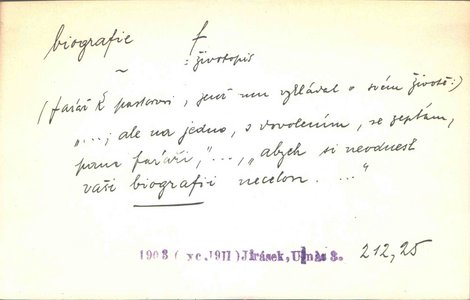 biografie f
: životopis
~
(farář K pastorovi, jenž mu vykládal o svém životě:)
„...; ale na jedno, s dovolením, se zeptám,
pane faráři,“..., „abych si neodnesl
vaši biografii necelou. ...“
1903 (vyc.1911) Jirásek, U nás 3. 212,25